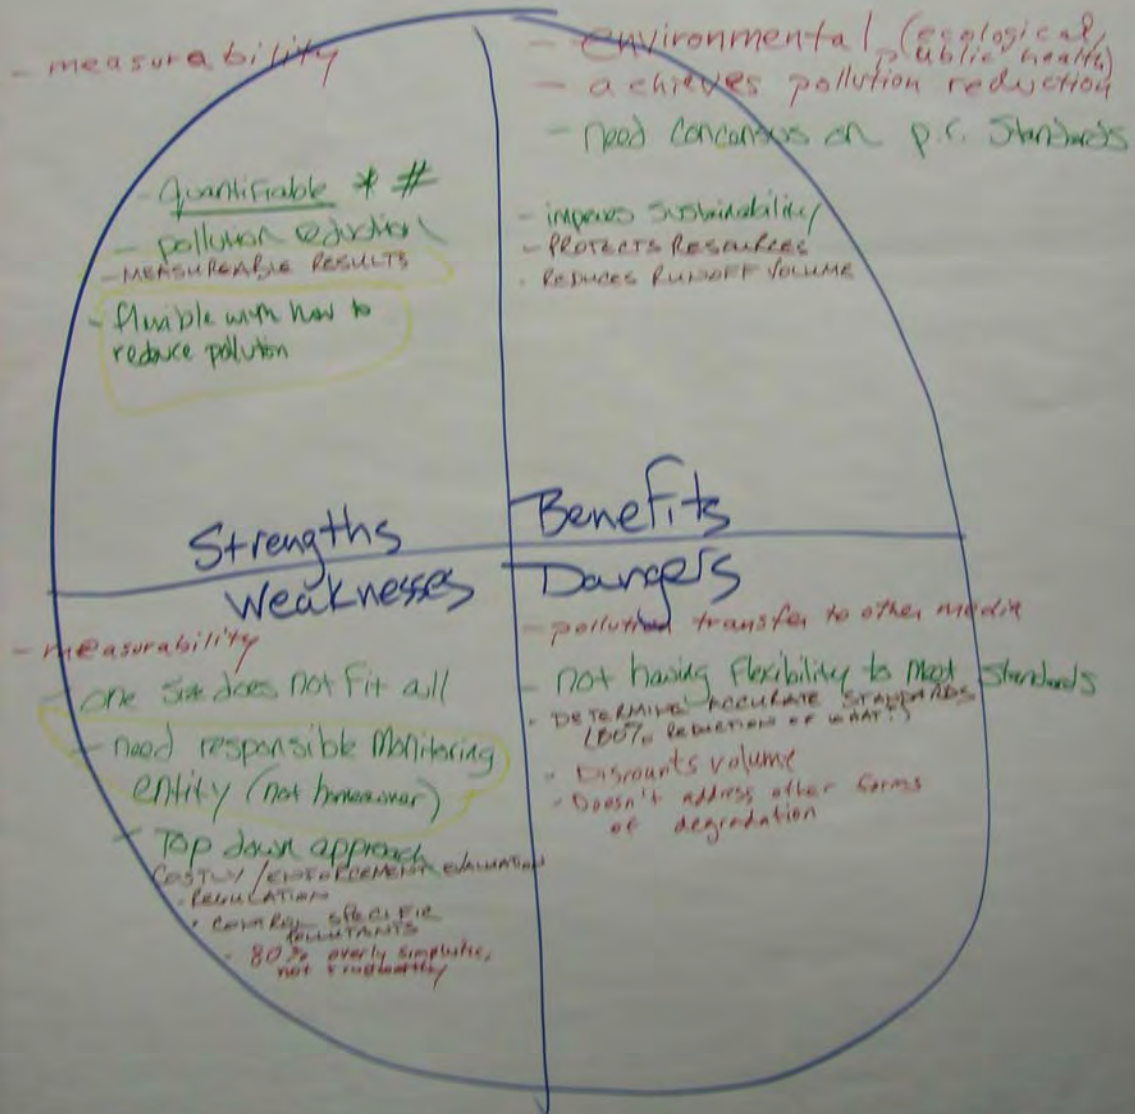 - measurability
- Quantifiable * #
- pollution reduction
- MEASUREABLE RESULTS
- flexible with how to
reduce polluton
Strengths
- environmental (ecological,
public health)
- achieves pollution reduction
- need concensus on p.c. Standards
- improves sustainability
- PROTECTS RESOURCES
- REDUCES RUNOFF VOLUME
Benefits
Weaknesses
- measurability
- one size does not fit all
- need responsible Monitoring
entity (not homeowner)
- Top down approach
COSTLY / ENFORCEMENT EVALUATION
- REGULATION
- CONTROL SPECIFIC
POLLUTANTS
- 80% overly simplistic,
not trustworthy
Dangers
- pollution transfer to other media
- not having flexibility to meet standards
- DETERMINE ACCURATE STANDARDS
(80% REDUCTION OF WHAT?)
- Discounts volume
- Doesn't address other forms
of degradation